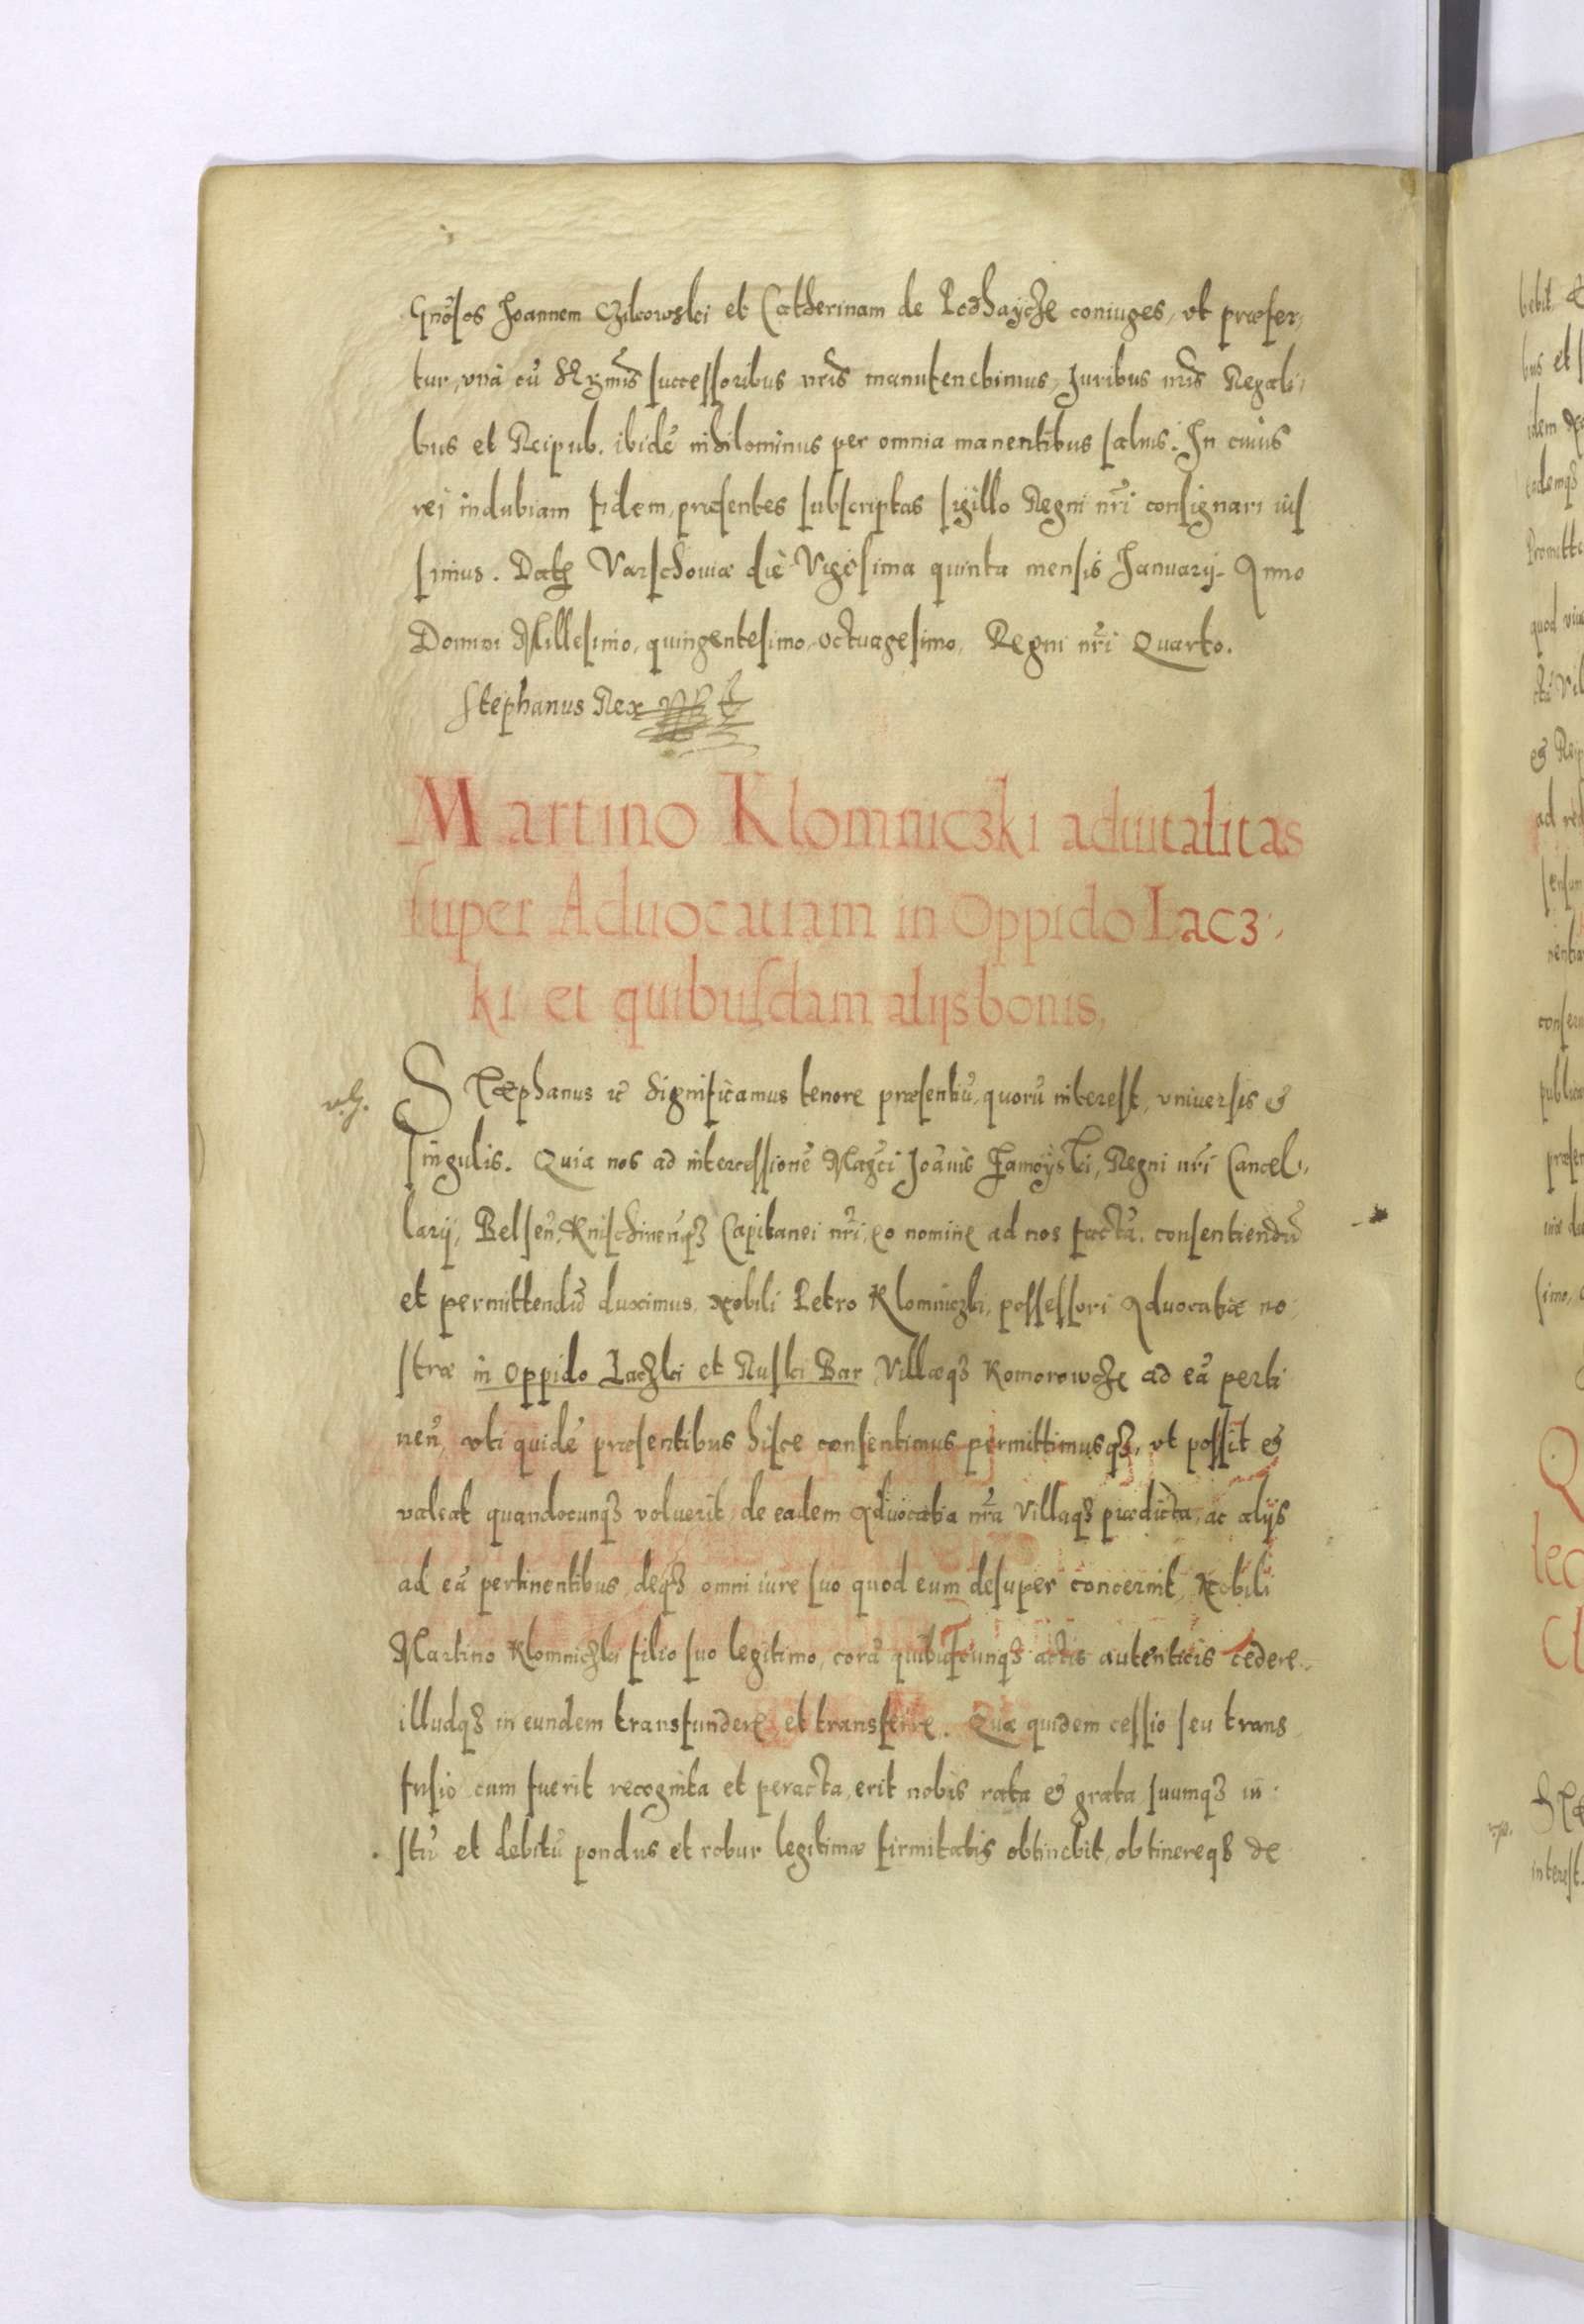 Gnõsos Joannem Czilcowski et Catherinam de Podhaycze coniuges, vt præfer,
tur, vnà cũ Srgmis successoribus nr̃is manutenebimus, Juribus nr̃is Regali,
bus et Reipub. ibidẽ nihilominus per omnia manentibus saluis. In cuius
rei indubiam fidem, præsentes subscriptas sigillo Regni nr̃i consignari ius
simus. Dat Varschouiæ diè Vigesima quinta mensis Januarij. Anno
Domini Millesimo, quingentesimo, octuagesimo, Regni nr̃i Quarto.
Stephanus Rex
Martino Klomniczki aduitalitas
super Aduocatiam in Oppido Lacz,
ki et quibusdam alijs bonis,
Stephanus &c Significamus tenore præsentiũ, quorũ interest, vniuersis &
singulis. Quia nos ad intercessionẽ Magci Joãnis Zamoyski, Regni nr̃i Cancel,
larij, Belsen̄, Knischinen̄q3 Capitanei nr̃i, eo nomine ad nos factã, consentiendũ
et permittendũ duximus, Nobili Petro Klomniczki, possessori Aduocatiæ no
stræ in Oppido Laczki et Ruski Bar, Villæq3 Komorowcze ad eã perti
nen̄, vti quidẽ præsentibus hisce consentimus permittimusq3, vt possit &
valeat quandocunq3 voluerit, de eadem Aduocatia nr̃a Villaq3 prædicta, ac alijs
ad eã pertinentibus, deq3 omni iure suo quod eum desuper concernit, Nobili
Martino Klomniczki filio suo legitimo, corã quibuscunq3 actis autenticis cedere
illudq3 in eundem transfundere, et transferre. Quæ quidem cessio seu trans
fusio cum fuerit recognita et peracta, erit nobis rata & grata, suumq3 iu
stũ et debitũ pondus et robur legitimæ firmitatis obtinebit, obtinereq3 de